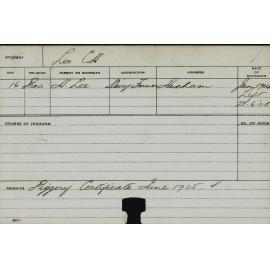 STUDENT Lee C H 1
AGE RELIGION PARENT OR GUARDIAN OCCUPATION ADDRESS DATE OF ENTRANCE
16 Pres H Lee Dairy Farmer Jan 1904
Left
COURSE OF TRAINING NO. OF ROOM
RESULTS Piggery Certificate June 1905. ✓